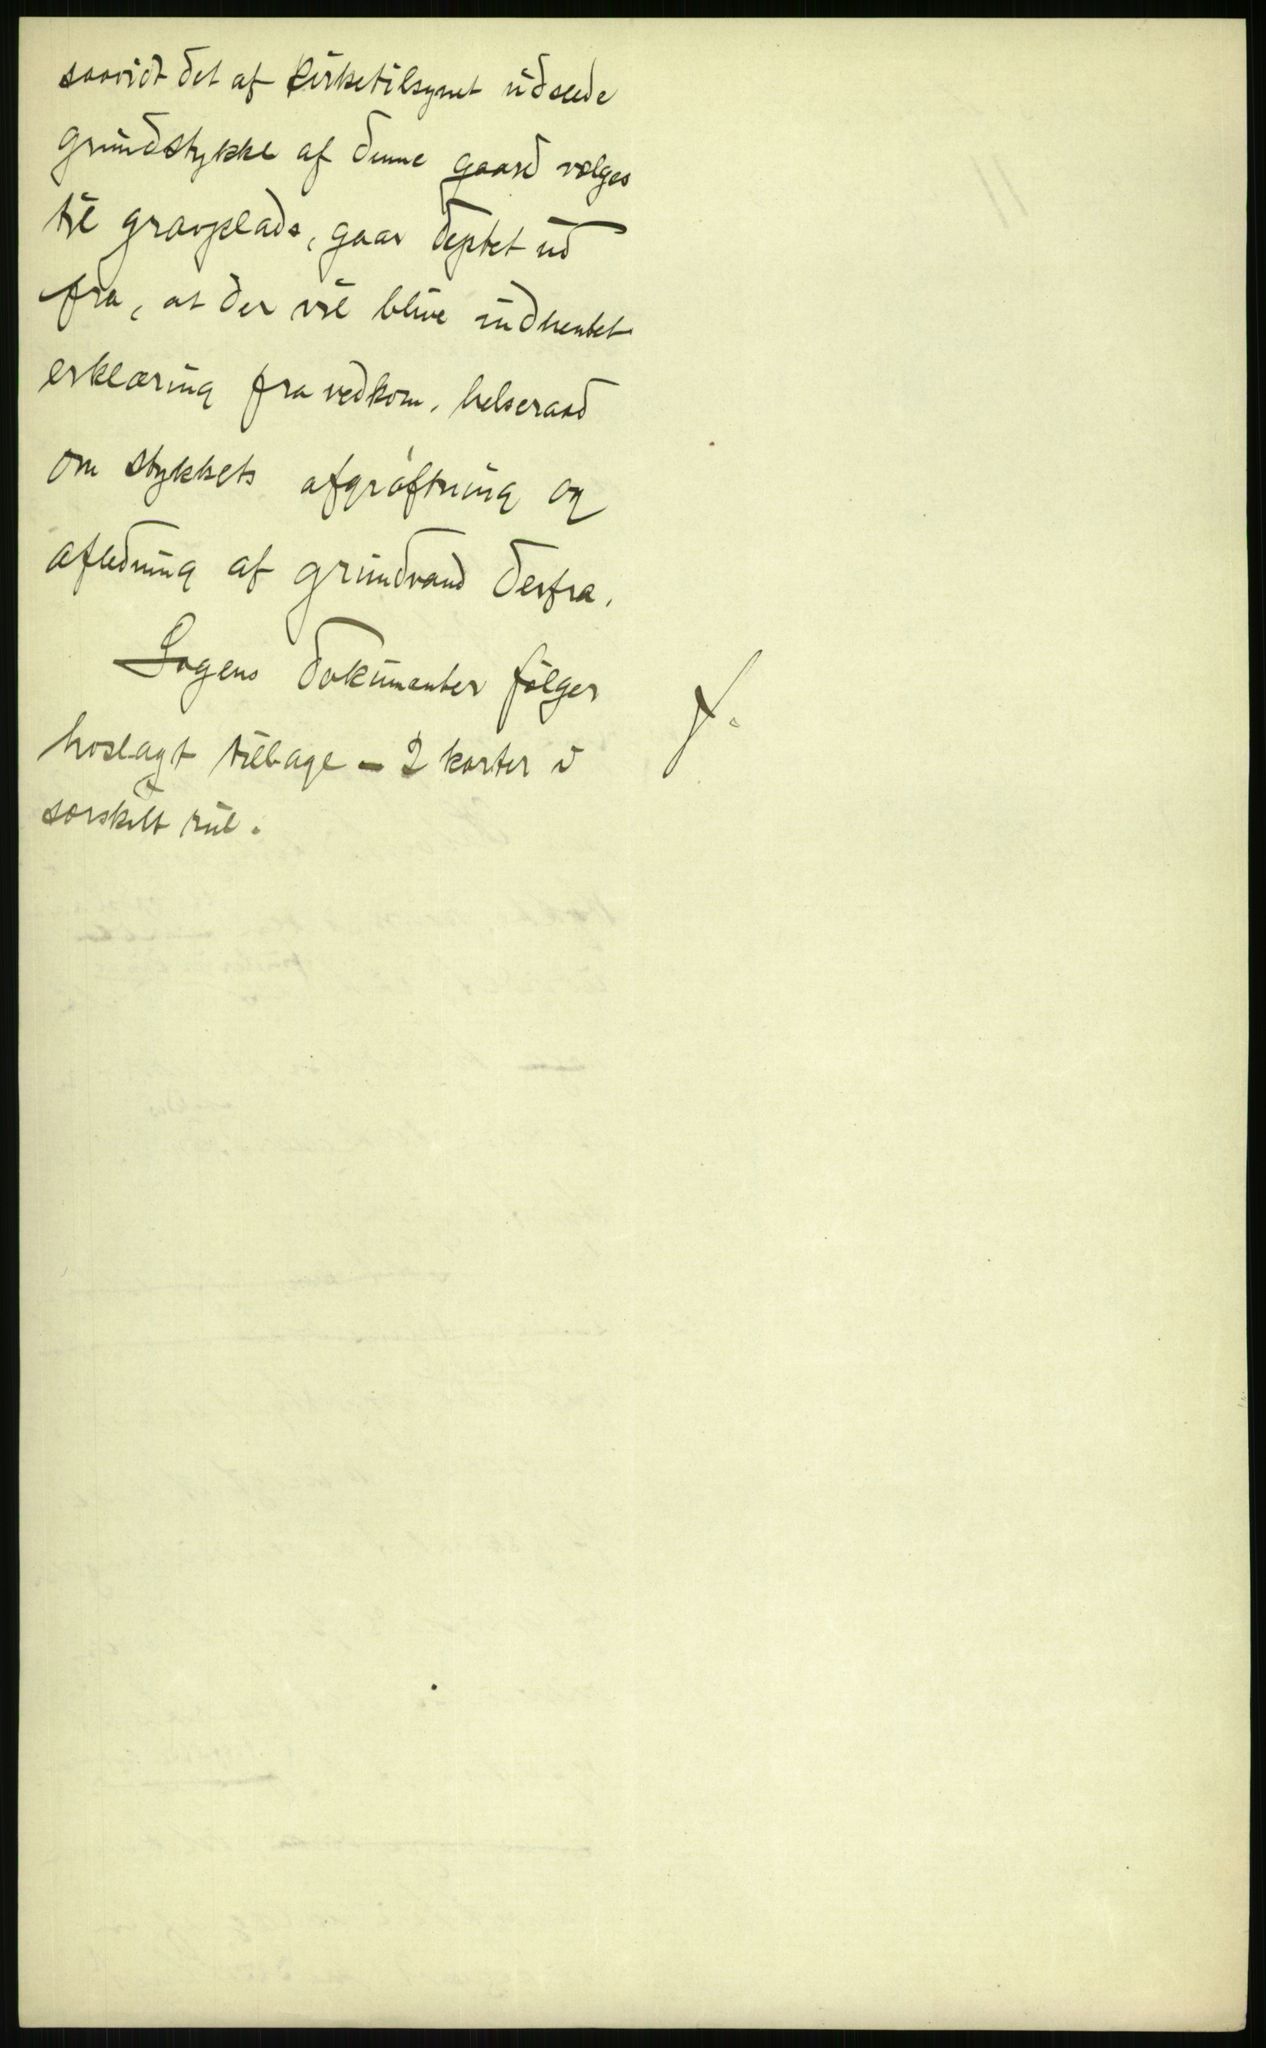 saavidt det af kirketilsynet udseede
grundstykke af denne gaard vælges
til gravplads, gaar deptet ud
fra, at der vil blive indhentet
erklæring fra vedkom. helseraad
om stykkets afgrøftning og
afledning af grundvand derfra.
Sagens dokumenter følger
hoslagt tilbage - 2 karter i
særskilt rul.